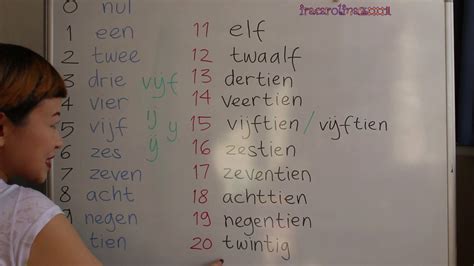 0 nul
1 een 11 elf
2 twee 12 twaalf
3 drie vijf 13 dertien
4 vier 14 veertien
5 vijf ij y 15 vijftien / vijftien
ÿ
6 zes 16 zestien
7 zeven 17 zeventien
8 acht 18 achttien
9 negen 19 negentien
tien 20 twintig